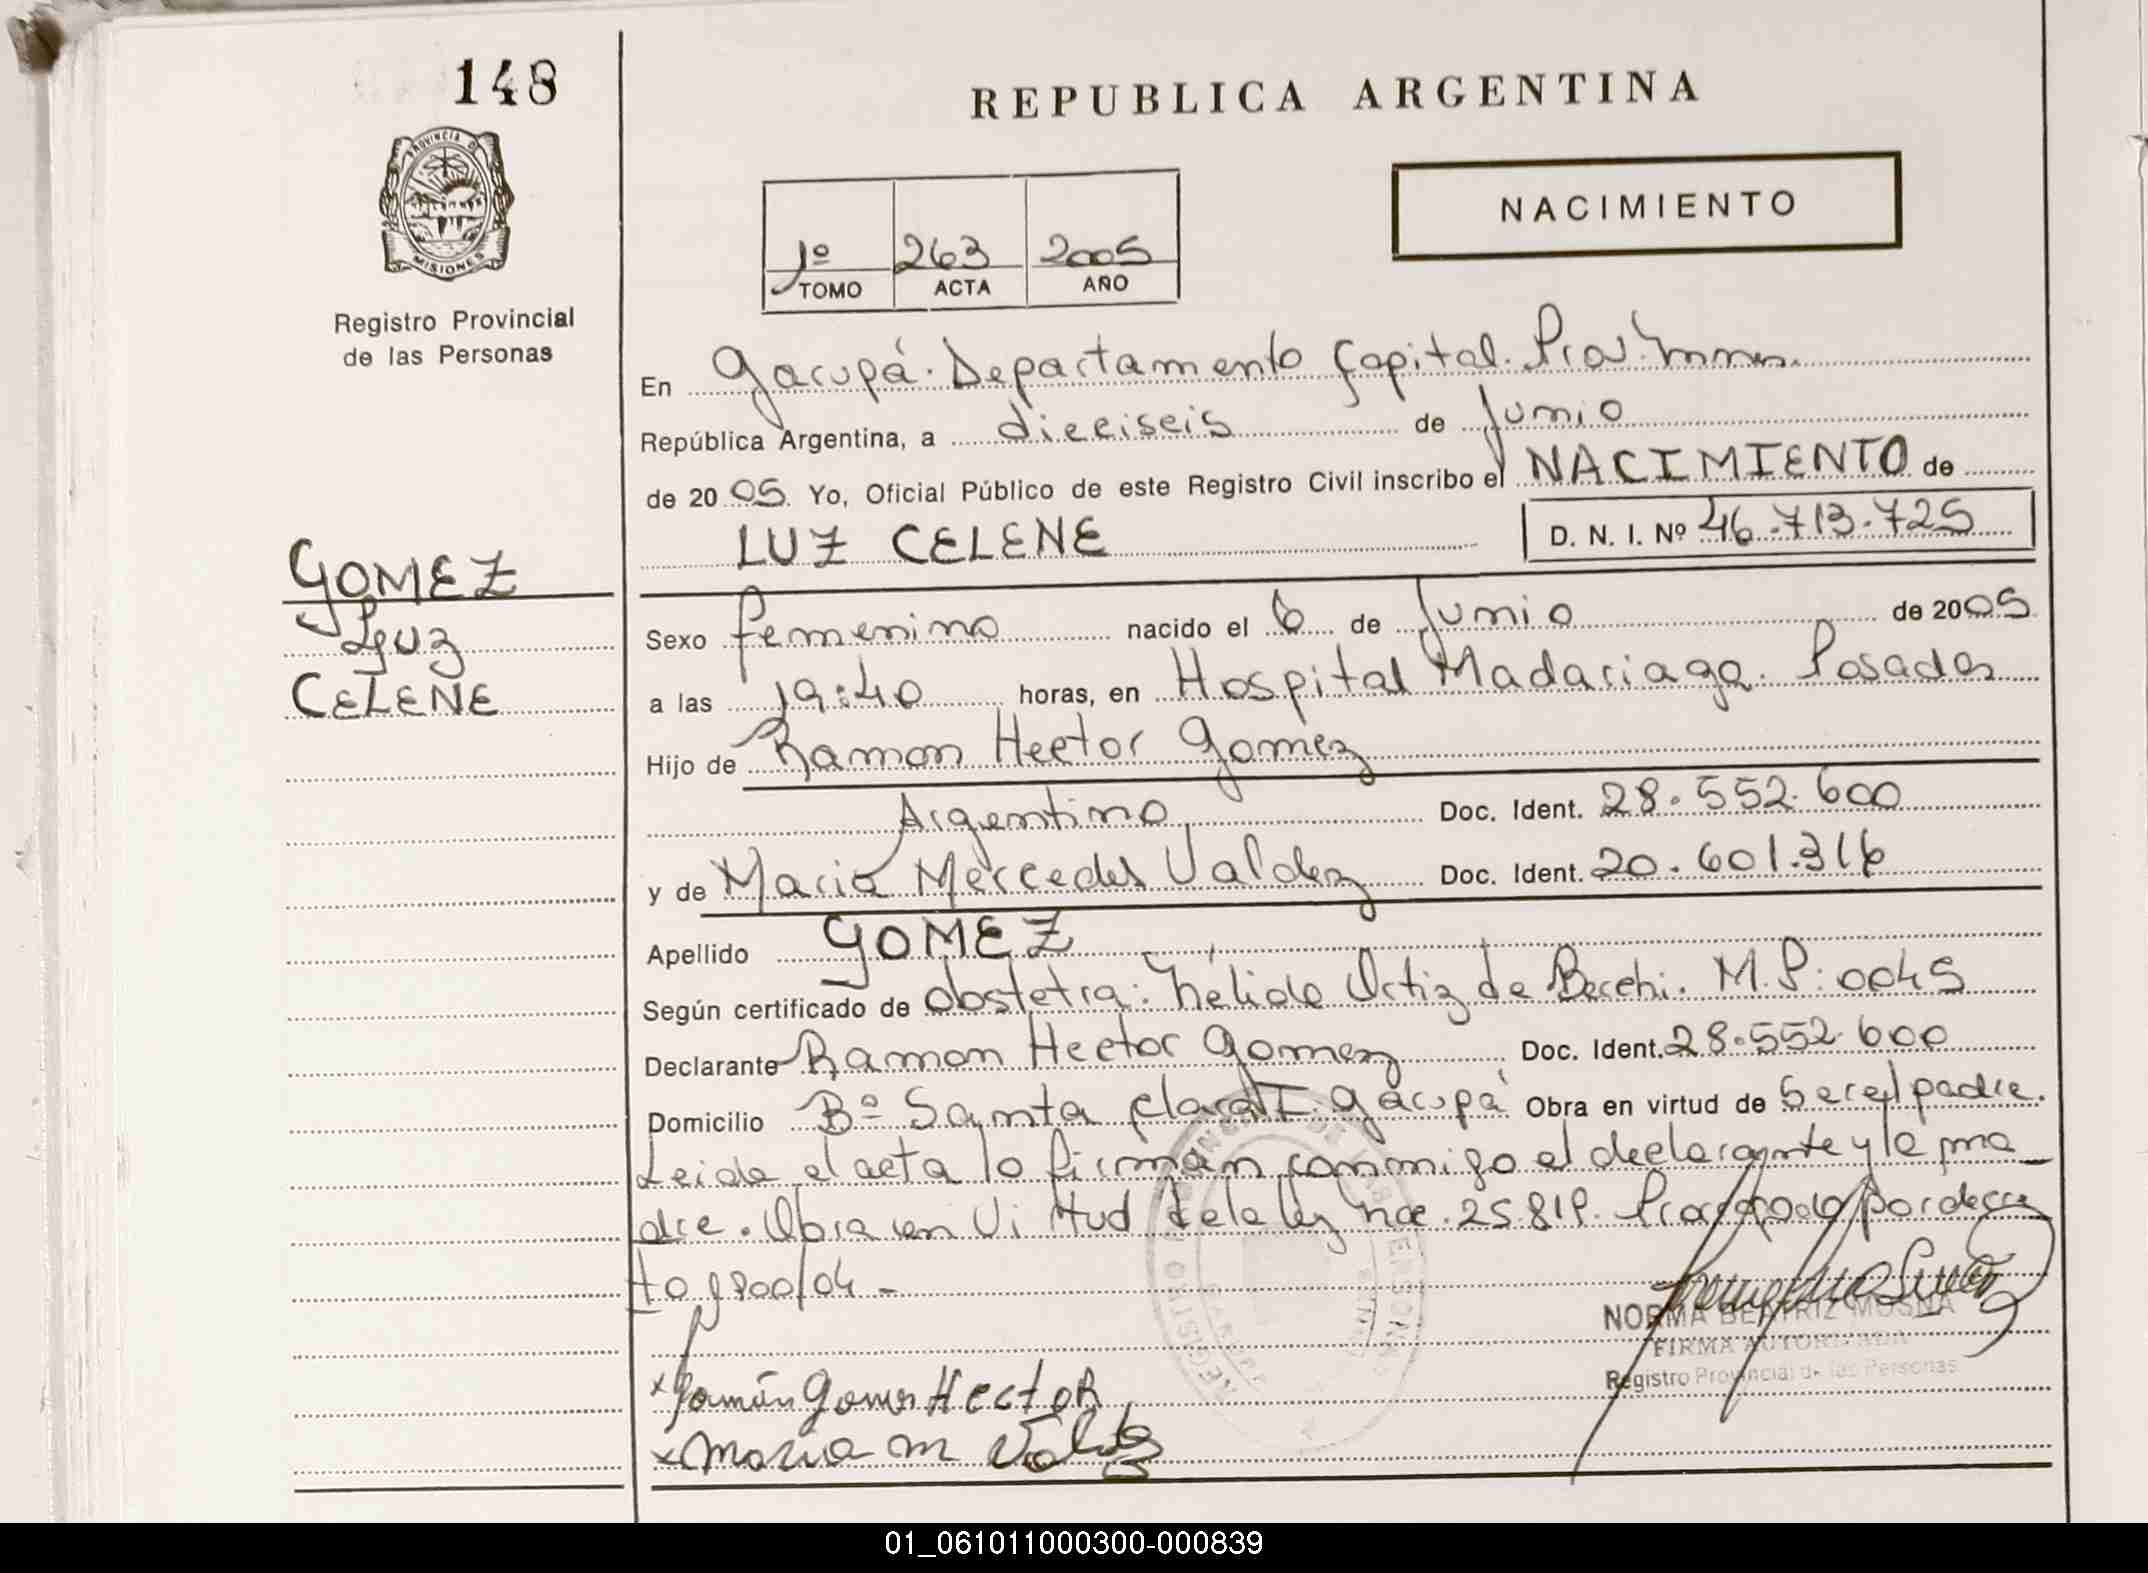 148
REPUBLICA ARGENTINA
PROVINCIA DE
MISIONES
Registro Provincial
de las Personas
NACIMIENTO
1º 263 2005
TOMO ACTA AÑO
En Garupá. Departamento Capital. Prov. Mnes.
República Argentina, a dieciseis de Junio
de 2005. Yo, Oficial Público de este Registro Civil inscribo el NACIMIENTO de
LUZ CELENE D. N. I. Nº 46.713.725
GOMEZ
Luz
CELENE
Sexo femenino nacido el 6 de Junio de 2005
a las 19:40 horas, en Hospital Madariaga. Posadas
Hijo de Ramon Hector Gomez
Argentino Doc. Ident. 28.552.600
y de Maria Mercedes Valdez Doc. Ident. 20.601.316
Apellido GOMEZ
Según certificado de obstetra: Nélida Ortiz de Becchi. M.P: 0045
Declarante Ramon Hector Gomez Doc. Ident. 28.552.600
Domicilio Bº Santa Clara I. Garupá Obra en virtud de ser el padre.
Leida el acta lo firman conmigo el declarante y la ma
dre. Obra en Vi rtud de la ley nro. 25.819. Prorrogado por decre
to 1900/04 -
NORMA BEATRIZ MOSNA
FIRMA AUTORIZADA
Registro Provincial de las Personas
x Román Gomes Hector
x Maria M Valdez
01_061011000300-000839